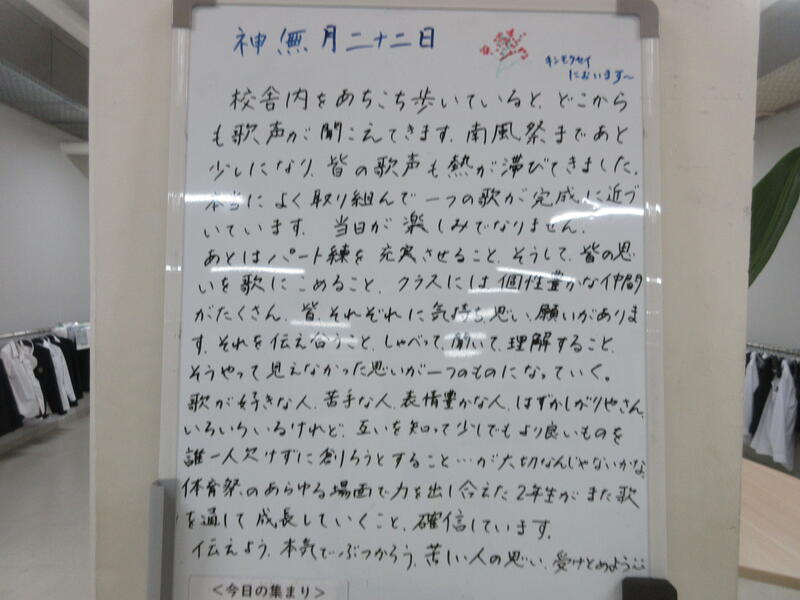 神無月二十二日
キンモクセイ
においます～
校舎内をあちこち歩いていると、どこから
も歌声が聞こえてきます。南風祭まであと
少しになり、皆の歌声も熱が滞びてきました。
本当によく取り組んで一つの歌が完成に近づ
いています。当日が楽しみでなりません。
あとはパート練を充実させること、そうして、皆の思
いを歌にこめること、クラスには個性豊かな仲間
がたくさん、皆、それぞれに気持ち、思い、願いがありま
す、それを伝え合うこと、しゃべって、聞いて、理解すること、
そうやって見えなかった思いが一つのものになっていく。
歌が好きな人、苦手な人、表情豊かな人、はずかしがりやさん、
いろいろいるけれど、互いを知って少しでもより良いものを
誰一人欠けずに創ろうとすること…が大切なんじゃないかな。
体育祭のあらゆる場面で力を出し合えた2年生がまた歌
を通して成長していくこと、確信しています。
伝えよう、本気でぶつかろう、苦しい人の思い、受けとめよう
＜今日の集まり＞